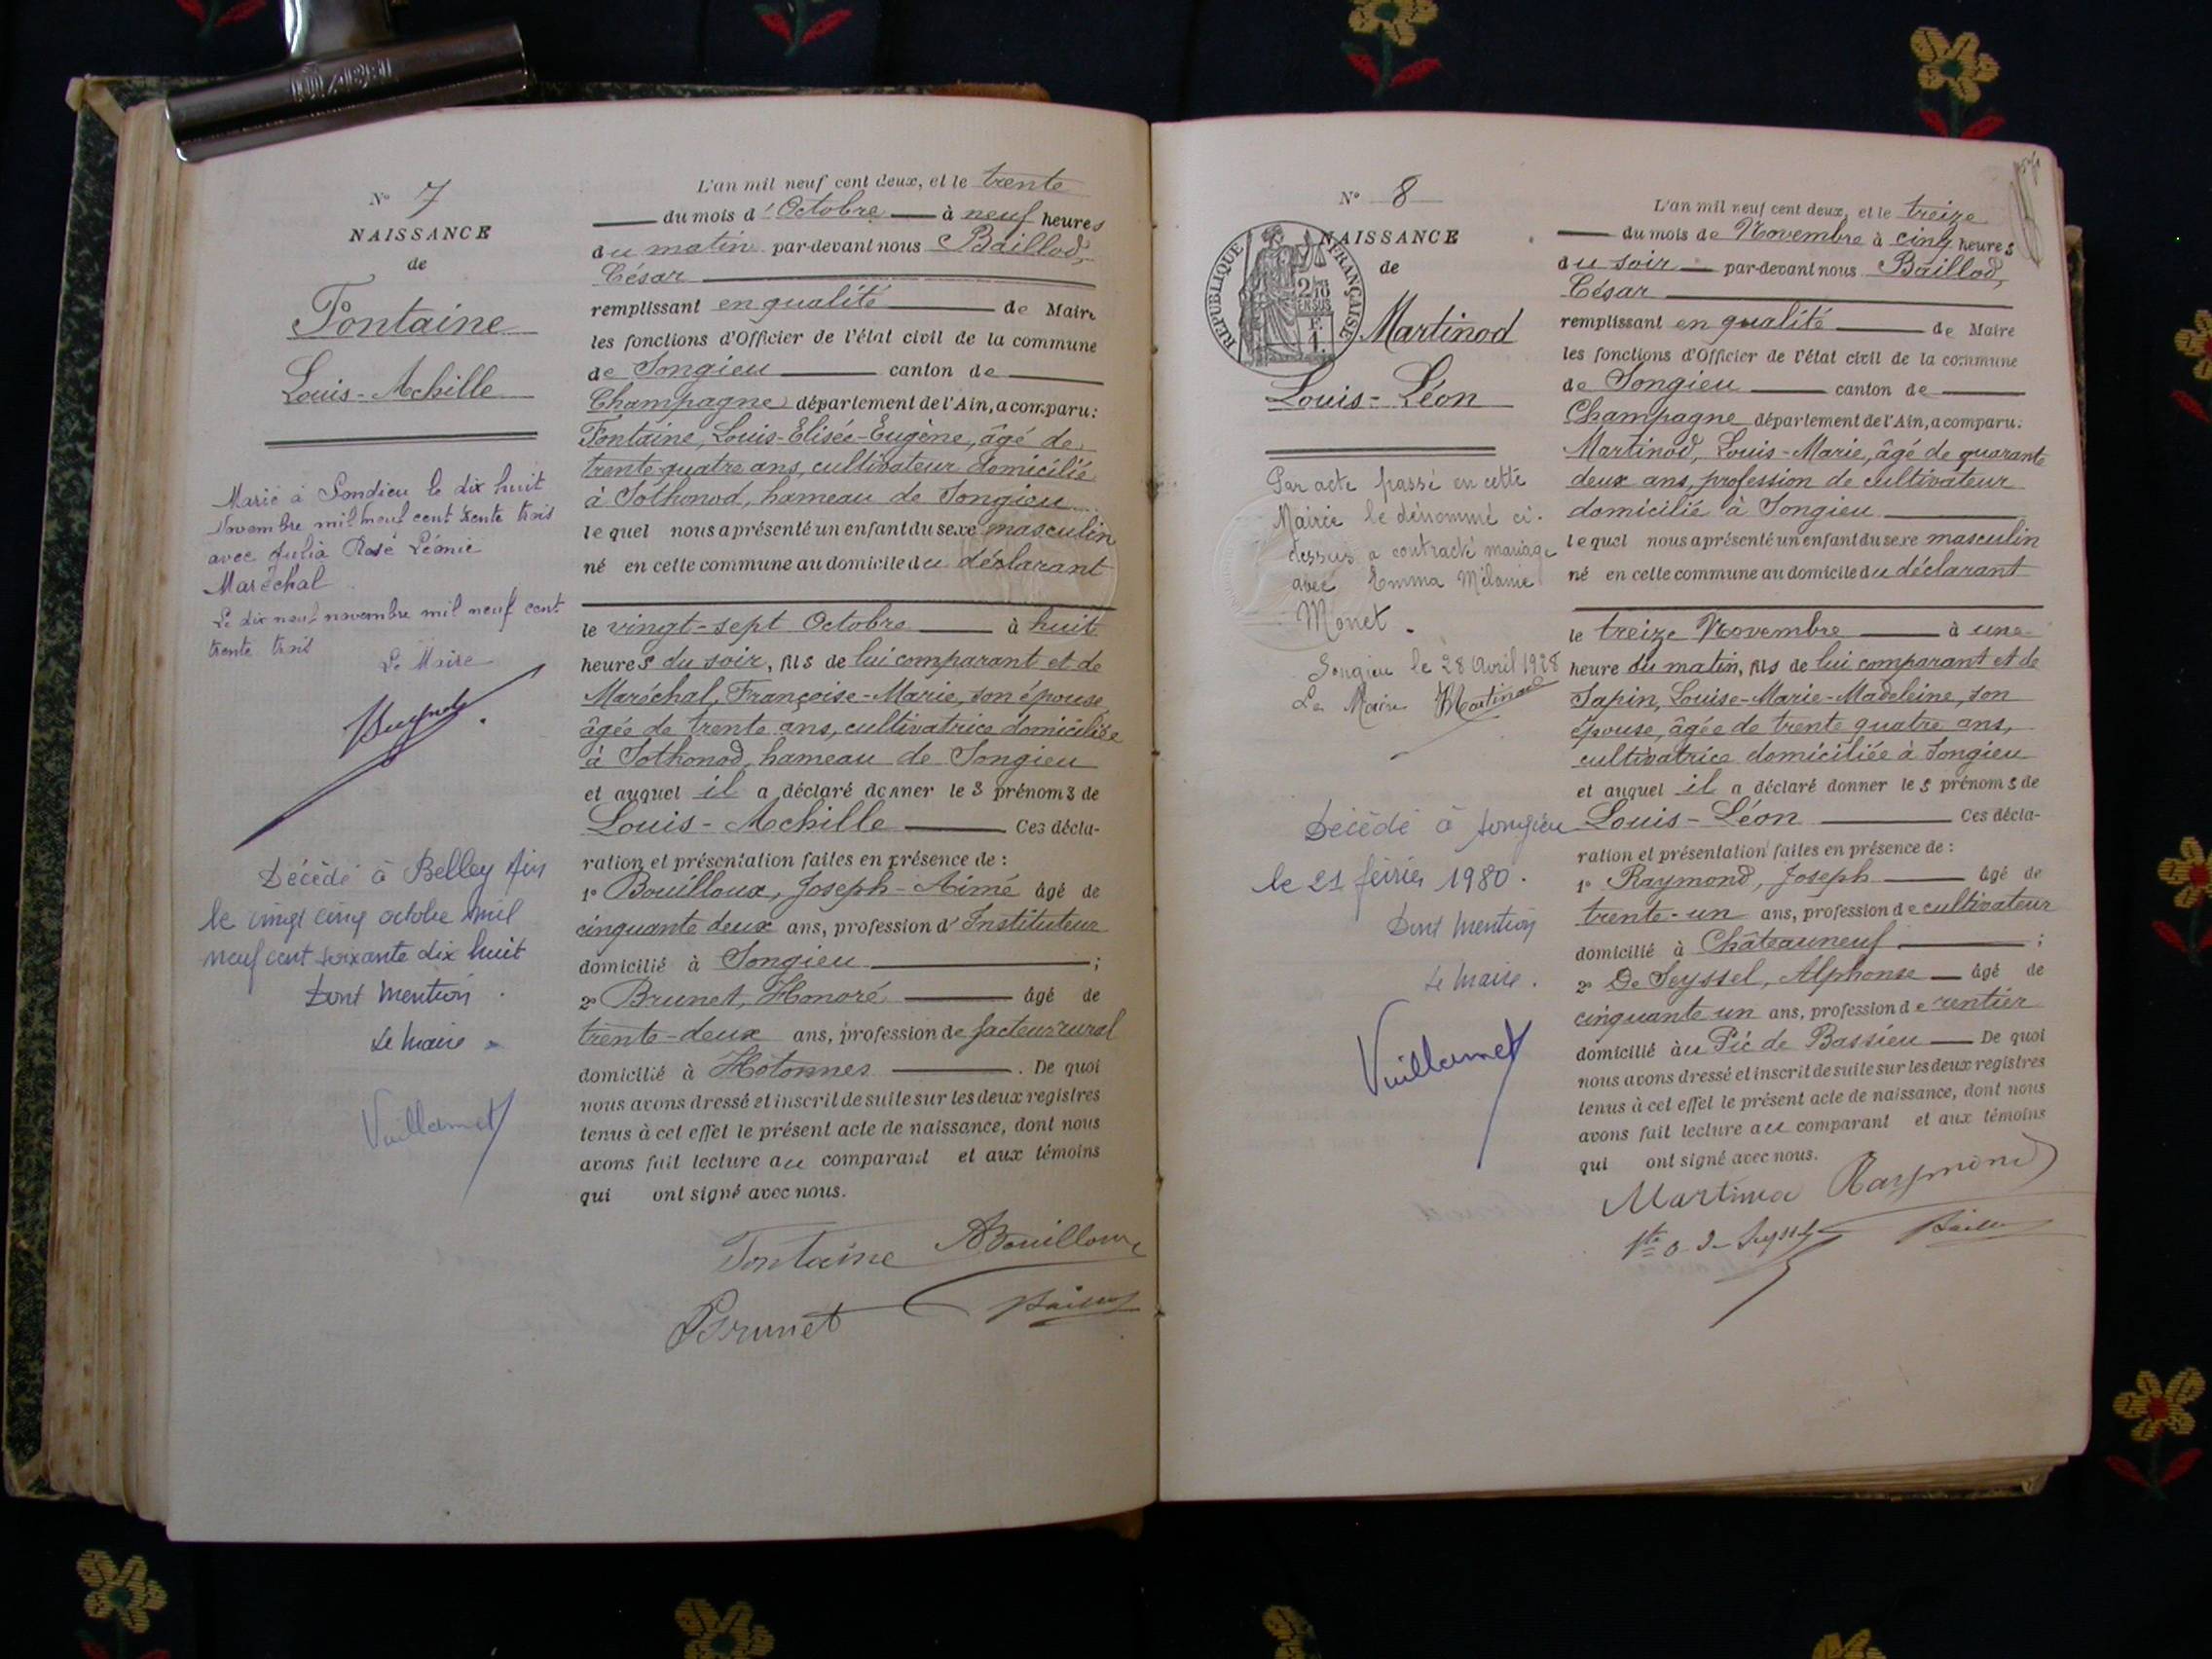 N° 7
NAISSANCE
de
Fontaine
Louis-Achille
Marié à Songieu le dix huit
Novembre mil neuf cent trente trois
avec Julia Rose Léonie
Maréchal
Le dix neuf novembre mil neuf cent
trente trois
Le Maire
Décédé à Belley Ain
le vingt cinq octobre mil
neuf cent soixante dix huit
Dont mention
Le Maire
Vuillamet
L'an mil neuf cent deux, et le trente
du mois d'Octobre à neuf heures
du matin par-devant nous Baillod,
César
remplissant en qualité de Maire
les fonctions d'Officier de l'état civil de la commune
de Songieu canton de
Champagne département de l'Ain, a comparu:
Fontaine, Louis-Elisée-Eugène, âgé de
trente-quatre ans, cultivateur domicilié
à Sothonod, hameau de Songieu
lequel nous a présenté un enfant du sexe masculin
né en cette commune au domicile du déclarant
le vingt-sept Octobre à huit
heures du soir, fils de lui comparant et de
Maréchal, Françoise-Marie, son épouse,
âgée de trente ans, cultivatrice domiciliée
à Sothonod, hameau de Songieu
et auquel il a déclaré donner les prénoms de
Louis-Achille Ces décla-
ration et présentation faites en présence de :
1° Bouilloux, Joseph-Aimé âgé de
cinquante deux ans, profession d'Instituteur
domicilié à Songieu ;
2° Brunet, Honoré âgé de
trente-deux ans, profession de facteur rural
domicilié à Hotonnes . De quoi
nous avons dressé et inscrit de suite sur les deux registres
tenus à cet effet le présent acte de naissance, dont nous
avons fait lecture au comparant et aux témoins
qui ont signé avec nous.
Fontaine ABouilloux
Brunet Baillod
N° 8
NAISSANCE
de
REPUBLIQUE FRANÇAISE
2/10 EN SUS
F. 1.
Martinod
Louis-Léon
Par acte passé en cette
Mairie le dénommé ci-
dessus a contracté mariage
avec Emma Mélanie
Monet.
Songieu le 28 Avril 1928
Le Maire Martinod
Décédé à Songieu
le 21 février 1980.
Dont mention
Le Maire.
Vuillamet
L'an mil neuf cent deux, et le treize
du mois de Novembre à cinq heures
du soir par-devant nous Baillod,
César
remplissant en qualité de Maire
les fonctions d'Officier de l'état civil de la commune
de Songieu canton de
Champagne département de l'Ain, a comparu:
Martinod, Louis-Marie, âgé de quarante
deux ans, profession de cultivateur
domicilié à Songieu
lequel nous a présenté un enfant du sexe masculin
né en cette commune au domicile du déclarant
le treize Novembre à une
heure du matin, fils de lui comparant et de
Sapin, Louise-Marie-Madeleine, son
épouse, âgée de trente quatre ans,
cultivatrice domiciliée à Songieu
et auquel il a déclaré donner les prénoms de
Louis-Léon Ces décla-
ration et présentation faites en présence de :
1° Raymond, Joseph âgé de
trente-un ans, profession de cultivateur
domicilié à Châteauneuf ;
2° De Seyssel, Alphonse âgé de
cinquante un ans, profession de rentier
domicilié au Pic de Bassieu De quoi
nous avons dressé et inscrit de suite sur les deux registres
tenus à cet effet le présent acte de naissance, dont nous
avons fait lecture au comparant et aux témoins
qui ont signé avec nous.
Martinod Raymond
Baillod